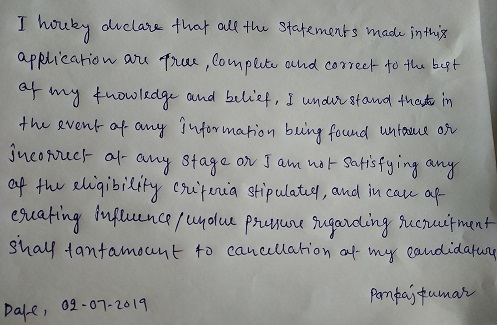 I hereby declare that all the statements made in this
application are true, complete and correct to the best
of my knowledge and belief, I understand that in
the event of any information being found untrue or
incorrect at any stage or I am not satisfying any
of the eligibility criteria stipulated, and in case of
creating influence/undue pressure regarding recruitment
shall tantamount to cancellation of my candidature
Pankaj kumar
Date, 02-07-2019